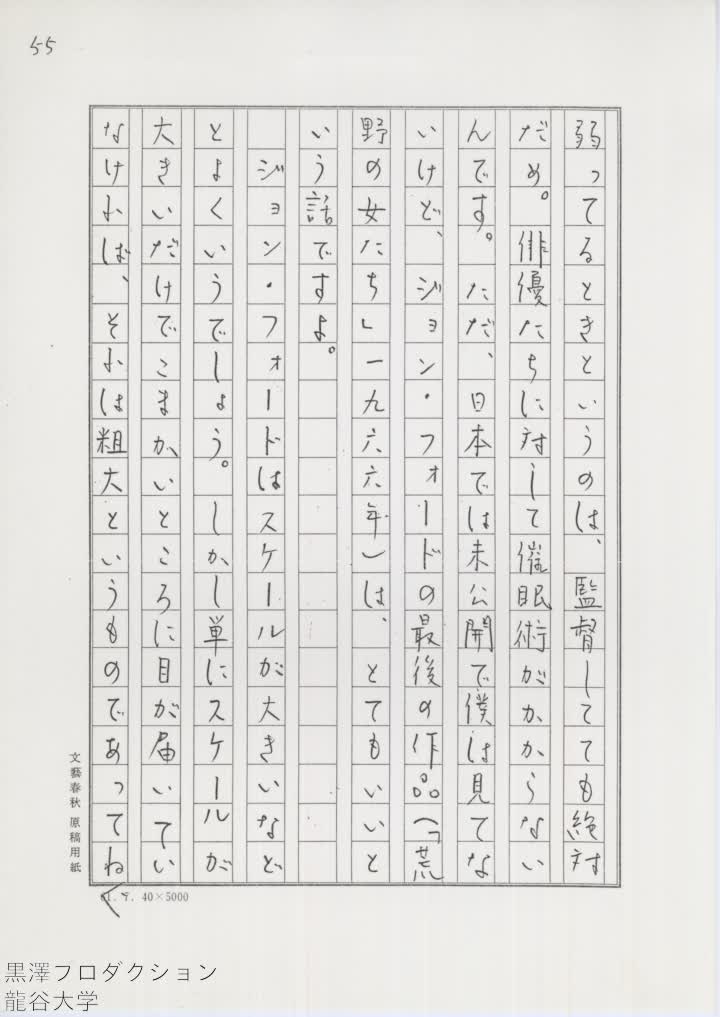 55
弱ってるときというのは、監督してても絶対
だめ。俳優たちに対して催眠術がかからない
んです。ただ、日本では未公開で僕は見てな
いけど、ジョン・フォードの最後の作品(「荒
野の女たち」一九六六年)は、とてもいいと
いう話ですよ。
ジョン・フォードはスケールが大きいなど
とよくいうでしょう。しかし単にスケールが
大きいだけでこまかいところに目が届いてい
なければ、それは粗大というものであってね
文藝春秋 原稿用紙
61. 7. 40×5000
黒澤プロダクション
龍谷大学